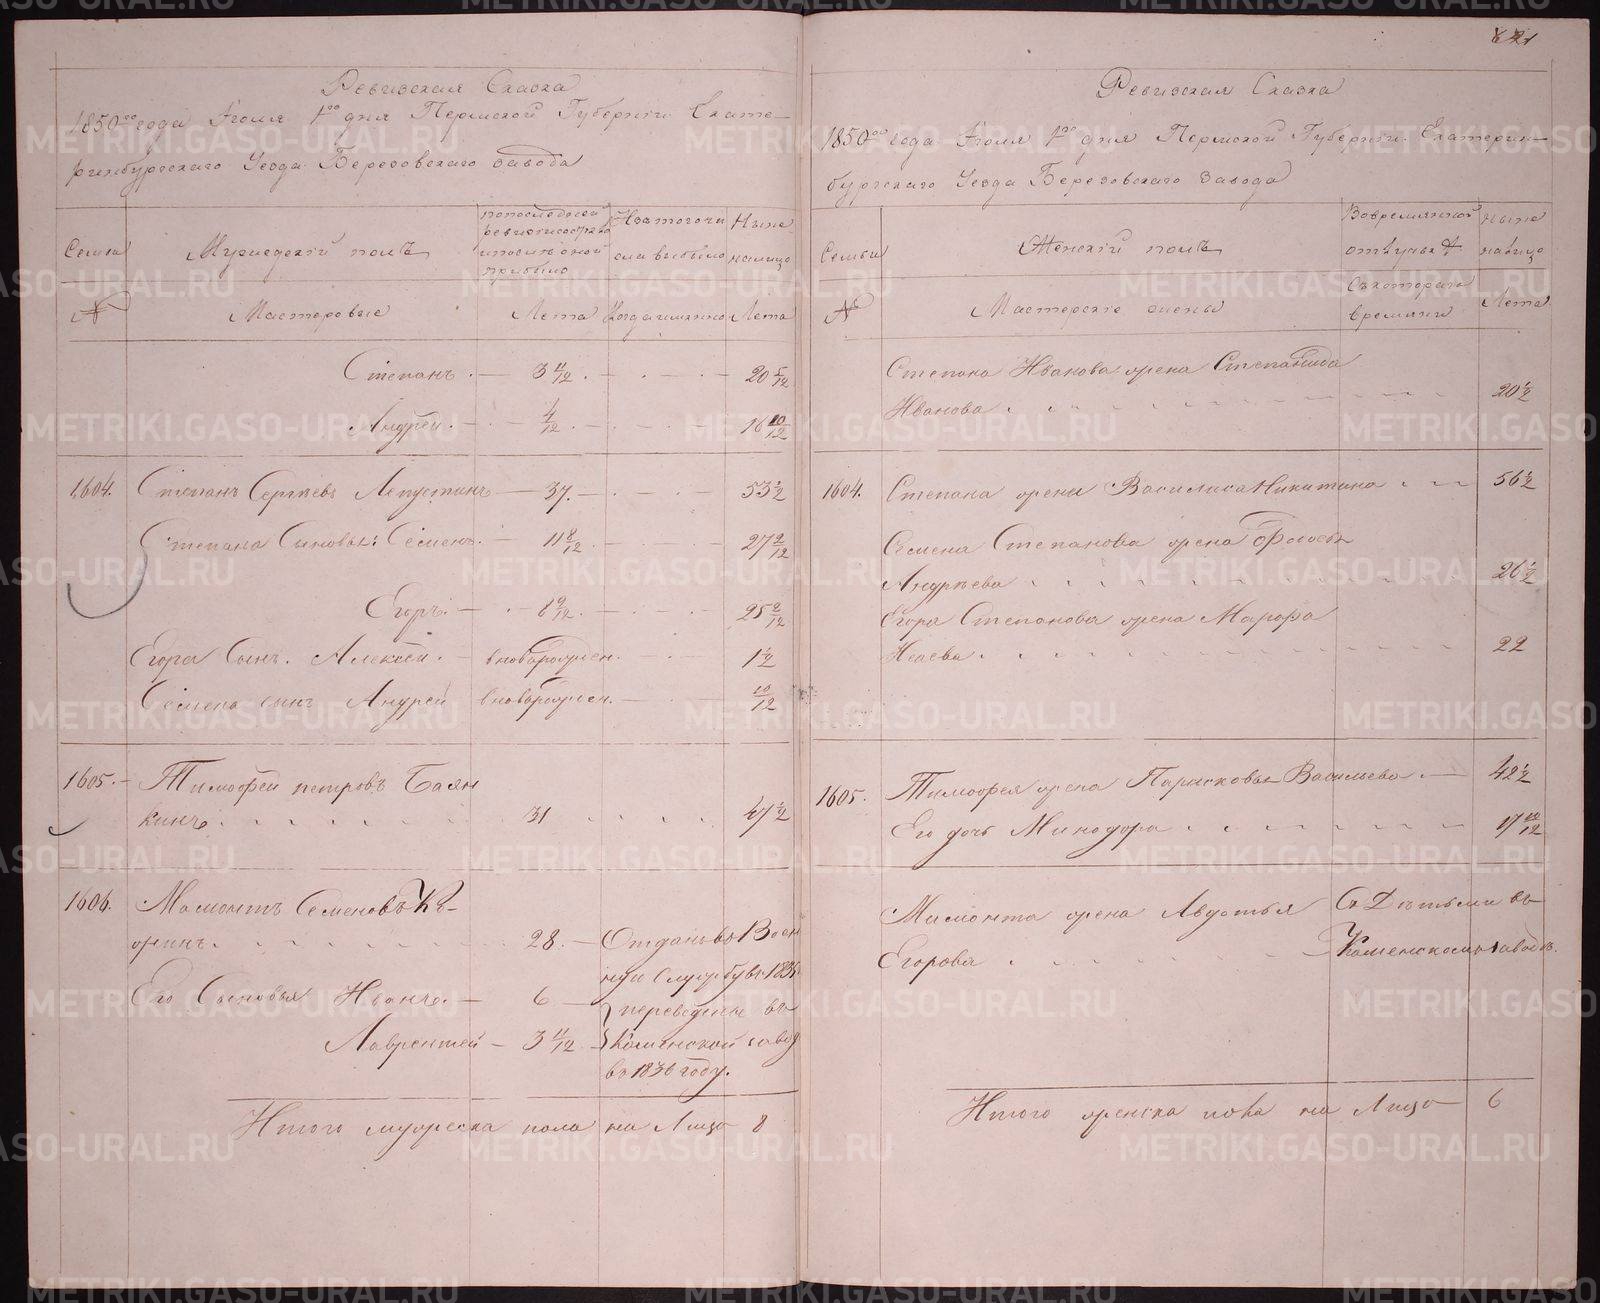 Ревизская Сказка
1850го года Июля 1го дня Пермской Губернiи Екате-
ринбургскаго Уезда Березовскаго завода
Семьи
Мужедскiй полъ
по последней
ревизiи состояло
и после оной
прибыло
Изъ того чи
сла выбыло
Ныне
налицо
№
Мастеровые
Лета
Когда имянно
Лета
Степанъ. — 3 4/12 . — . — . — 20 5/12
Андрей. — . 4/12 . — . — . — 16 10/12
1604. Степанъ Сергѣевъ Лепустинъ — 37. — . — . — 53 1/2
Степана Сыновья: Семенъ. — 11 8/12 . — . — 27 2/12
Егоръ. — . — 8 9/12 . — . — . — 25 2/12
Егора Сынъ. Алексѣй. — вновьрожден. — . — 1 1/2
Семена сынъ Андрей вновьрожден. — . — 10/12
1605. — Тимофей петровъ Баян
кинъ . . . . . . . 31 . . . . 47 1/2
1606. Мамонтъ Семеновъ
оринъ. . . . . . . . 28. — Отданъ въ Воен
ную службу въ
Его Сыновья Иванъ. — 6 — переведены въ
Лаврентей — 3 4/12 — Каменской завод
въ 1836 году.
Итого мужеска пола на Лицо 8
621
Ревизская Сказка
1850го года Июля 1го дня Пермской Губернiи Екатерин-
бургскаго Уезда Березовскаго Завода
Семьи
Женскiй полъ
Во времянной
отлучке
ныне
налицо
№
Мастерскiе жены
Съ котораго
времяни
Лета
Степана Иванова жена Степанида
Иванова . . . . . . . . . . 20 1/2
1604. Степана жены Василиса Никитина . — — 56 1/2
Семена Степанова жена Фодосья
Андрѣева . . . . . . . . . . 26 1/2
Егора Степанова жена Марфа
Исаева . . . . . . . . . . 22
1605. Тимофея жена Парасковья Васильева . — 42 1/2
Его дочь Минодора . . . . . . . 17 10/12
Мамонта жена Авдотья Съ Дѣтьми въ
Егорова . . . . . . Каменскомъ заводѣ.
Итого женска пола на Лицо 6
METRIKI.GASO-URAL.RU